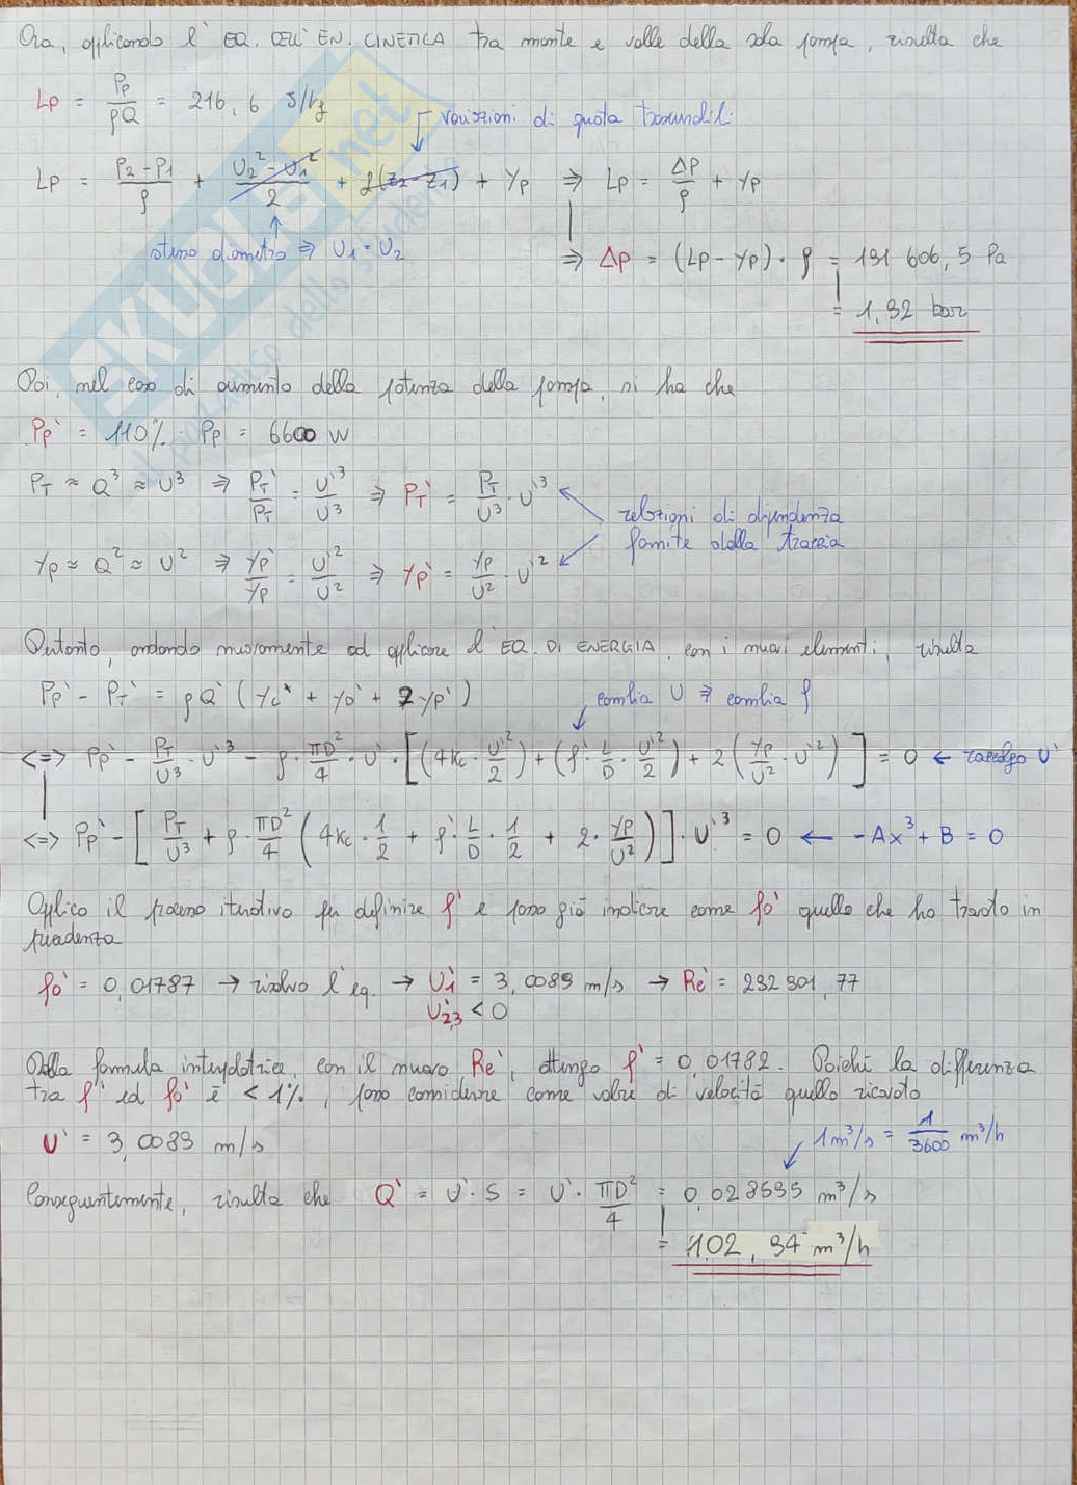 Ora, applicando l' EQ. DELL' EN. CINETICA tra monte e valle della sola pompa, risulta che
Lp = Pp/ρQ = 216,6 J/kg
variazioni di quota trascurabili
Lp = (p2 - p1)/ρ + (U2² - U1²)/2 + g(z2 - z1) + yp ⇒ Lp = Δp/ρ + yp
stesso diametro ⇒ U1 = U2
⇒ Δp = (Lp - yp) · ρ = 191 606,5 Pa
= 1,92 bar
Poi, nel caso di aumento della potenza della pompa, si ha che
Pp' = 110% Pp = 6600 W
PT ≈ Q³ ≈ U³ ⇒ PT'/PT = U'³/U³ ⇒ PT' = PT/U³ · U'³
relazioni di dipendenza
fornite dalla traccia
yp ≈ Q² ≈ U² ⇒ yp'/yp = U'²/U² ⇒ yp' = yp/U² · U'²
Pertanto, andando nuovamente ad applicare l' EQ. DI ENERGIA, con i nuovi elementi, risulta
Pp' - PT' = ρQ' (yc' + yD' + 2yp')
cambia U ⇒ cambia f
<=> Pp' - PT/U³ · U'³ - ρ · πD²/4 · U' · [(4Kc · U'²/2) + (f' · L/D · U'²/2) + 2(yp/U² · U'²)] = 0 ← raccolgo U'
<=> Pp' - [PT/U³ + ρ · πD²/4 (4Kc · 1/2 + f' · L/D · 1/2 + 2 · yp/U²)] · U'³ = 0 ← -Ax³ + B = 0
Applico il processo iterativo per definire f' e posso già indicare come f0' quello che ho trovato in
precedenza
f0' = 0,01787 → risolvo l'eq. → U1' = 3,0089 m/s → Re' = 292 901,77
U'2,3 < 0
Dalla formula interpolatrice, con il nuovo Re', ottengo f' = 0,01782. Poiché la differenza
tra f' ed f0' è < 1%, posso considerare come valore di velocità quello ricavato
U' = 3,0089 m/s
1 m³/s = 1/3600 m³/h
Conseguentemente, risulta che Q' = U' · S = U' · πD²/4 = 0,028595 m³/s
= 102,94 m³/h